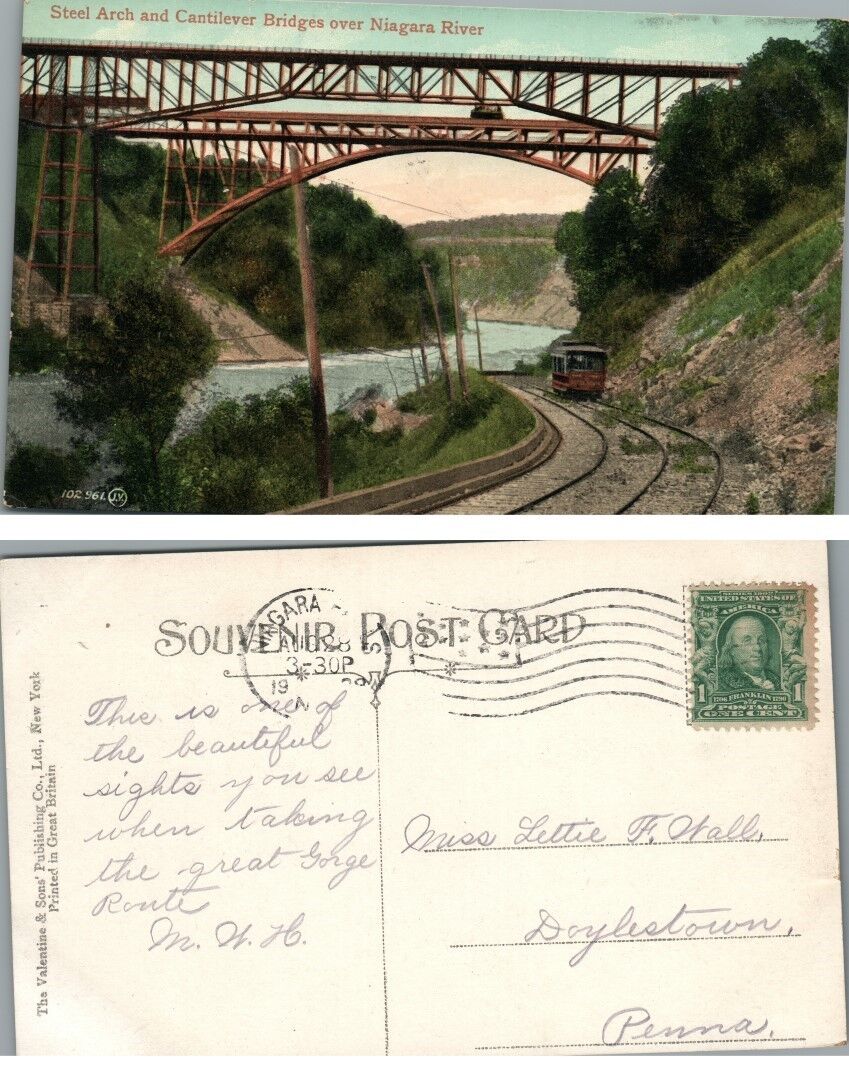 Steel Arch and Cantilever Bridges over Niagara River
102961. J.V.
SOUVENIR POST CARD
NIAGARA
AUG 28
3-30P
19
N
SERIES 1902
UNITED STATES OF
AMERICA
1 1706 FRANKLIN 1790 1
POSTAGE
ONE CENT
The Valentine & Sons' Publishing Co., Ltd., New York
Printed in Great Britain
This is one of
the beautiful
sights you see
when taking
the great Gorge
Route
M. W. H.
Miss Lettie F. Wall,
Doylestown,
Penna.